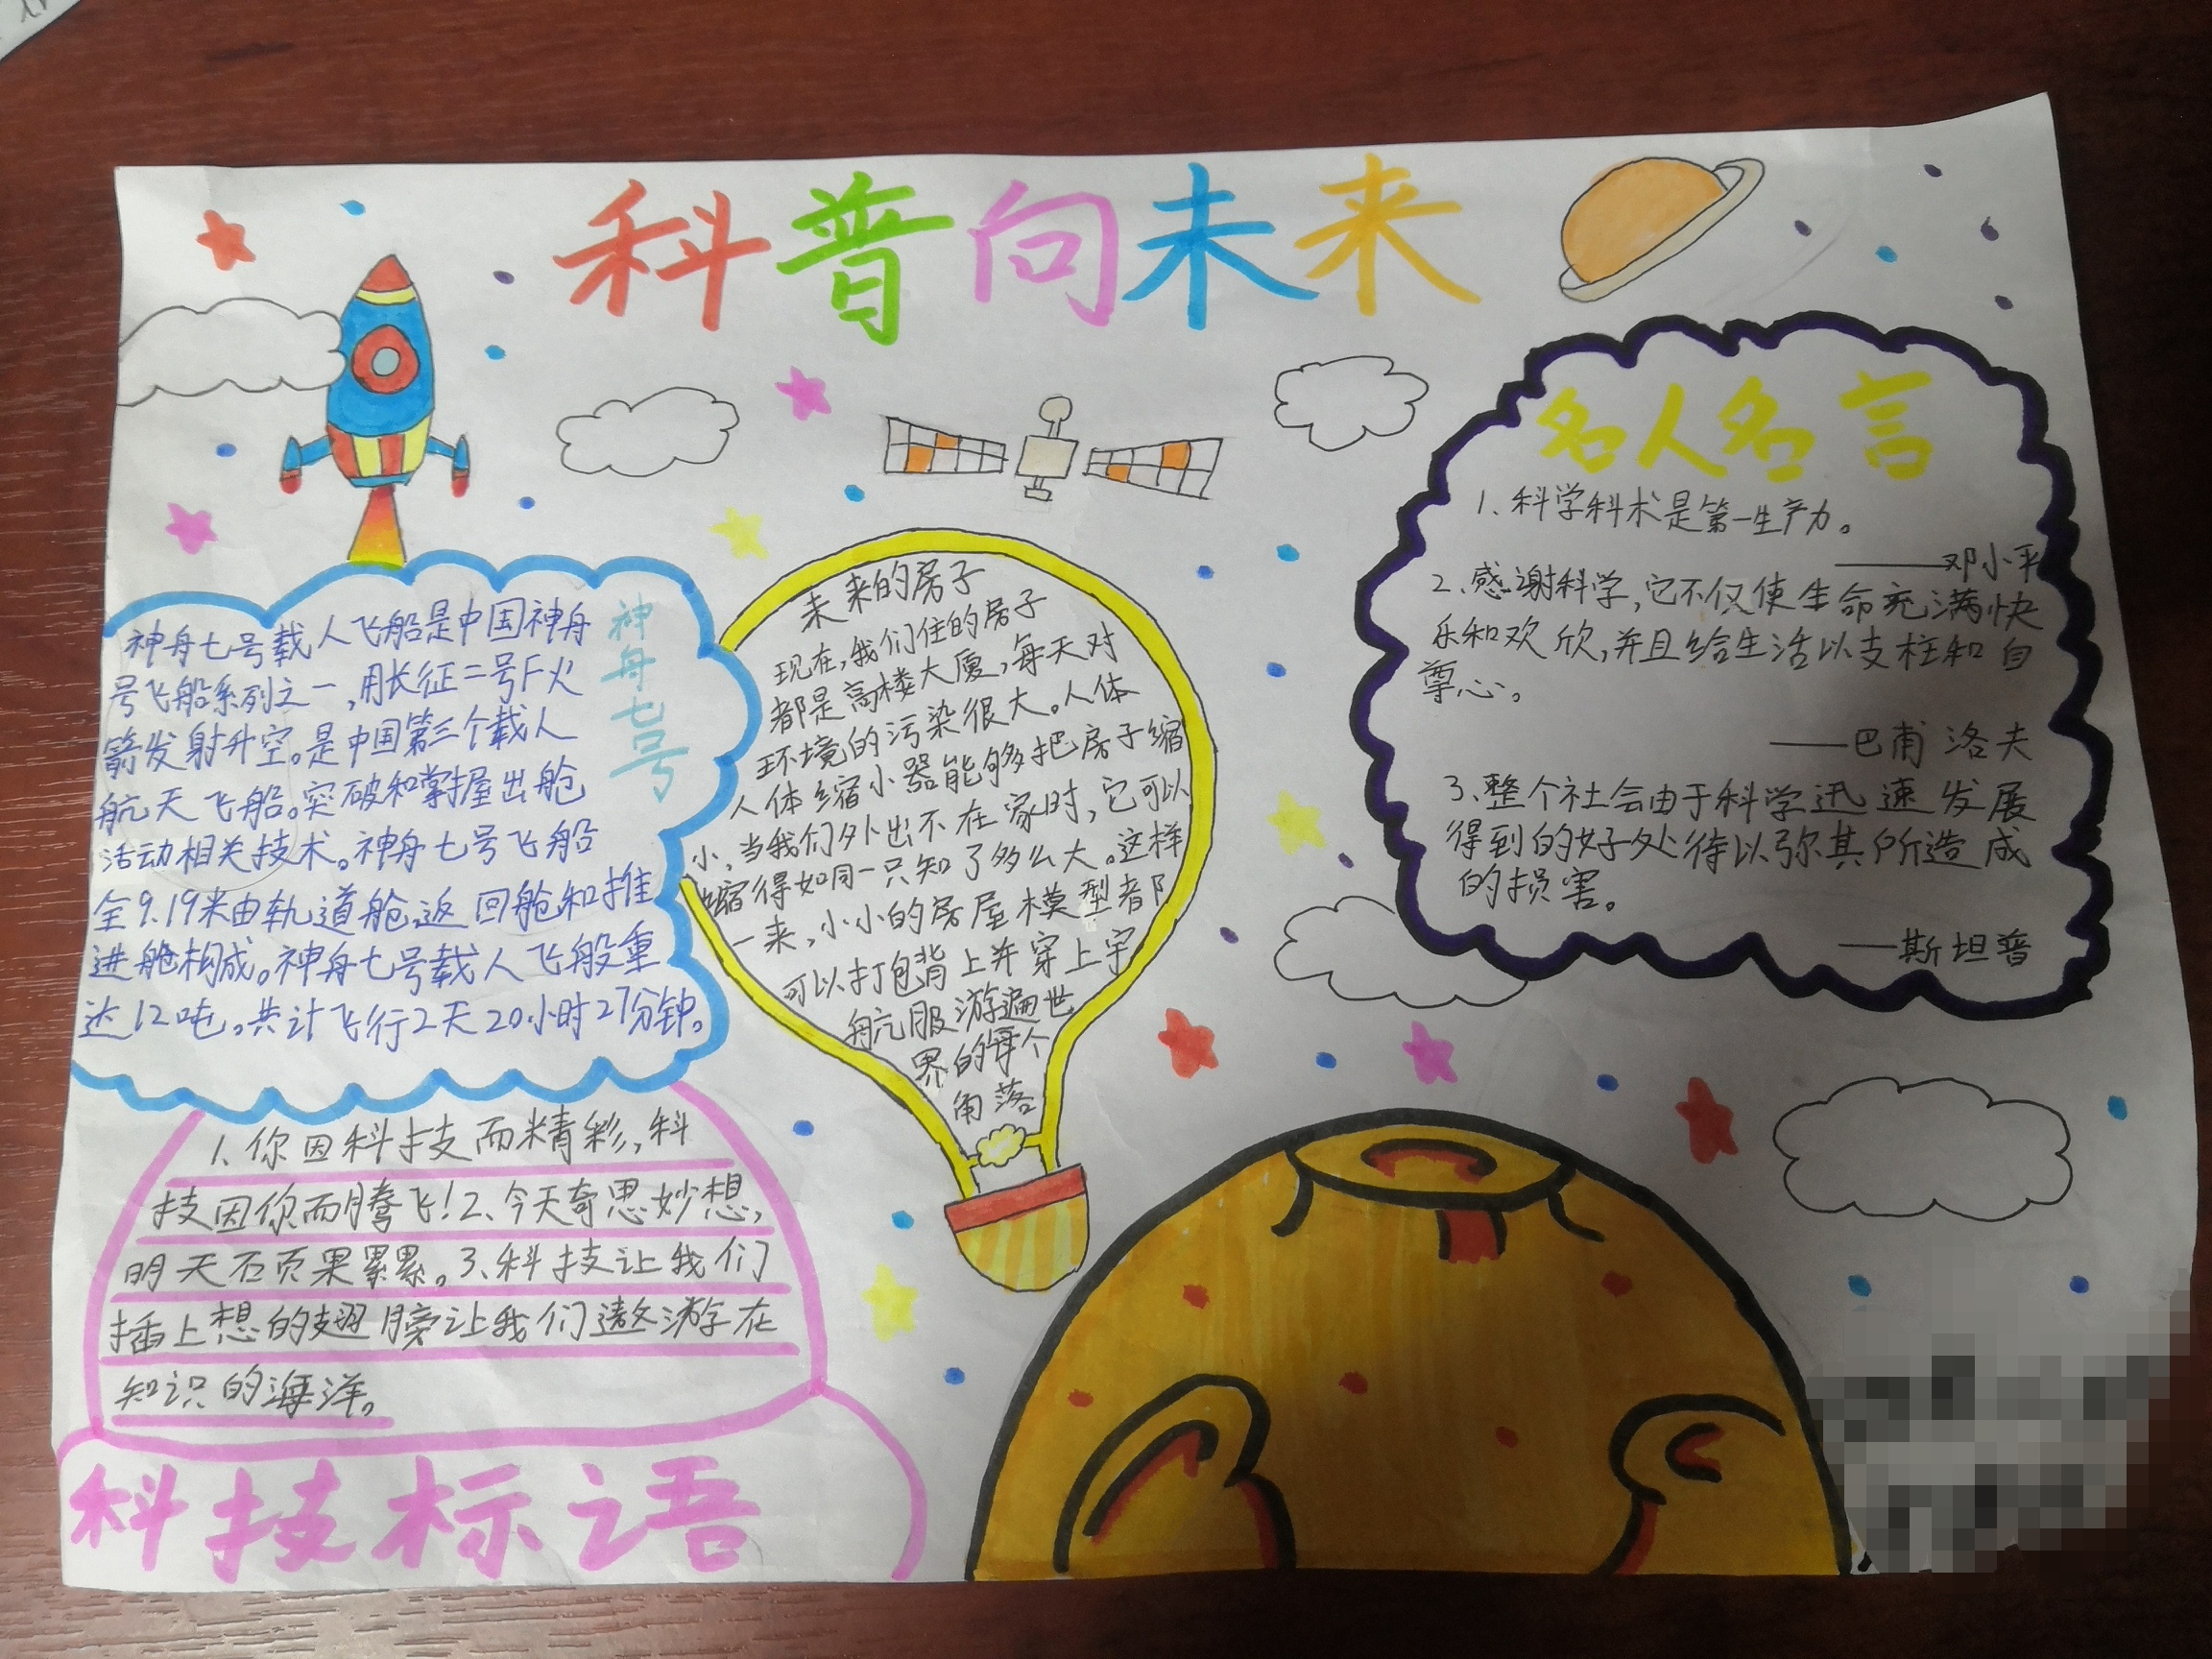 科普向未来
神舟七号
神舟七号载人飞船是中国神舟
号飞船系列之一,用长征二号F火
箭发射升空。是中国第三个载人
航天飞船。突破和掌握出舱
活动相关技术。神舟七号飞船
全9.19米由轨道舱、返回舱和推
进舱构成。神舟七号载人飞般重
达12吨。共计飞行2天20小时27分钟。
未来的房子
现在,我们住的房子
都是高楼大厦,每天对
环境的污染很大。人体
人体缩小器能够把房子缩
小,当我们外出不在家时,它可以
缩得如同一只知了多么大。这样
一来,小小的房屋模型都
可以打包背上并穿上宇
航服游遍世
界的每个
角落
名人名言
1、科学科术是第一生产力。
——邓小平
2、感谢科学,它不仅使生命充满快
乐和欢欣,并且给生活以支柱和自
尊心。
——巴甫洛夫
3、整个社会由于科学迅速发展
得到的好处待以弥其所造成
的损害。
——斯坦普
1、你因科技而精彩,科
技因你而腾飞!2、今天奇思妙想,
明天石页果累累。3、科技让我们
插上想的翅膀让我们遨游在
知识的海洋。
科技标语